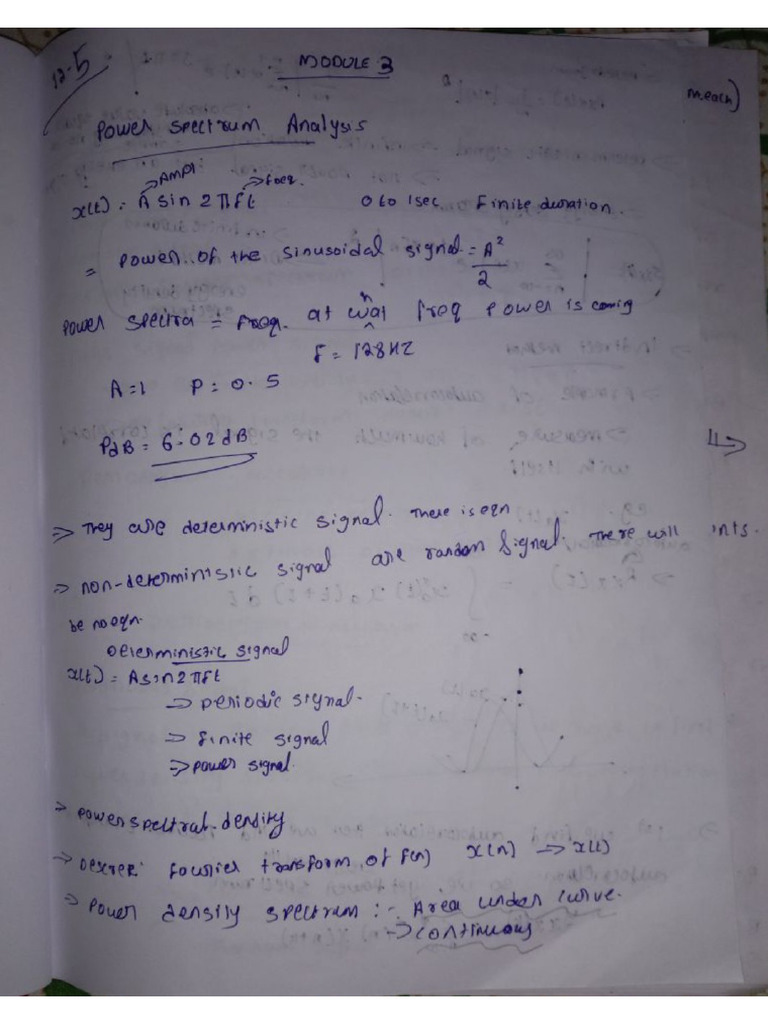 12-5
MODULE 3
m.each)
Power Spectrum Analysis
Ampl freq.
x(t) = A sin 2πft 0 to 1sec Finite duration.
= Power of the sinusoidal signal = A²/2
Power spectra = freq. at what freq power is coming
F = 128HZ
A=1 P=0.5
PdB = 6.02dB
=> They are deterministic signal. There is eqn
=> non-deterministic signal are random signal. There will
be no eqn.
Deterministic signal
x(t) = A sin 2πft
=> periodic signal.
=> finite signal
=> power signal.
=> Power spectral density
=> fourier transform of f(n) x(n) => x(t)
=> Power density spectrum :- Area under curve.
-> continuous